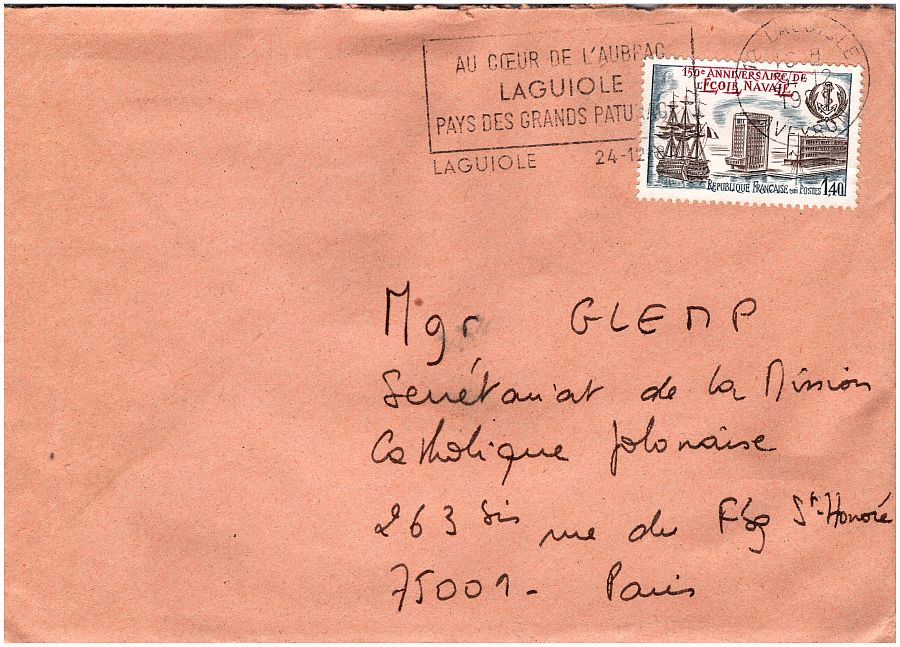 AU CŒUR DE L'AUBRAC
LAGUIOLE
PAYS DES GRANDS PATURAG
LAGUIOLE 24-12
LAGUIOLE
AVEYRON
150e ANNIVERSAIRE DE
L'ÉCOLE NAVALE
RÉPUBLIQUE FRANÇAISE POSTES 1,40
Mgr GLEMP
Secrétariat de la Mission
Catholique polonaise
263 bis rue du Fbg St-Honoré
75001 - Paris